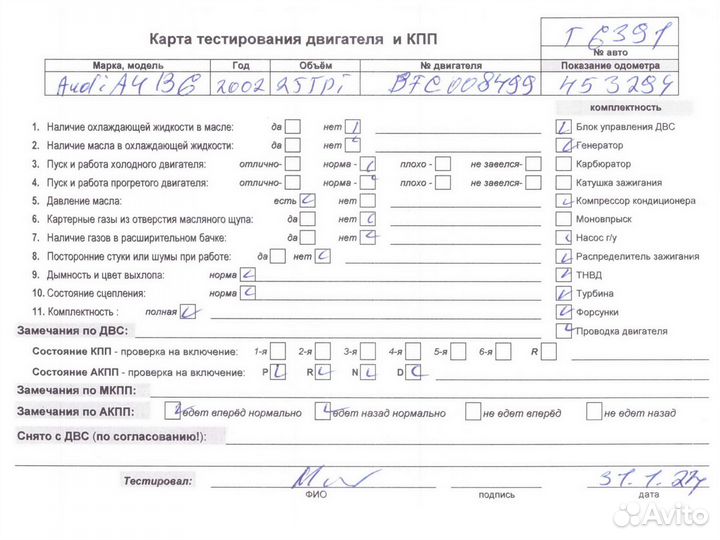 Карта тестирования двигателя и КПП
T 6391
№ авто
Марка, модель Год Объём № двигателя Показание одометра
Audi A4 B6 2002 25TDi BFC008499 453294
комплектность
1. Наличие охлаждающей жидкости в масле: да нет
Блок управления ДВС
2. Наличие масла в охлаждающей жидкости: да нет
Генератор
3. Пуск и работа холодного двигателя: отлично- норма - плохо - не завелся-
Карбюратор
4. Пуск и работа прогретого двигателя: отлично- норма - плохо - не завелся-
Катушка зажигания
5. Давление масла: есть нет
Компрессор кондиционера
6. Картерные газы из отверстия масляного щупа: да нет
Моновпрыск
7. Наличие газов в расширительном бачке: да нет
Насос г/у
8. Посторонние стуки или шумы при работе: да нет
Распределитель зажигания
9. Дымность и цвет выхлопа: норма
ТНВД
10. Состояние сцепления: норма
Турбина
11. Комплектность : полная
Форсунки
Замечания по ДВС:
Проводка двигателя
Состояние КПП - проверка на включение: 1-я 2-я 3-я 4-я 5-я 6-я R
Состояние АКПП - проверка на включение: P R N D
Замечания по МКПП:
Замечания по АКПП: едет вперёд нормально едет назад нормально не едет вперёд не едет назад
Снято с ДВС (по согласованию!):
Тестировал: 31.1.24
ФИО подпись дата
Avito